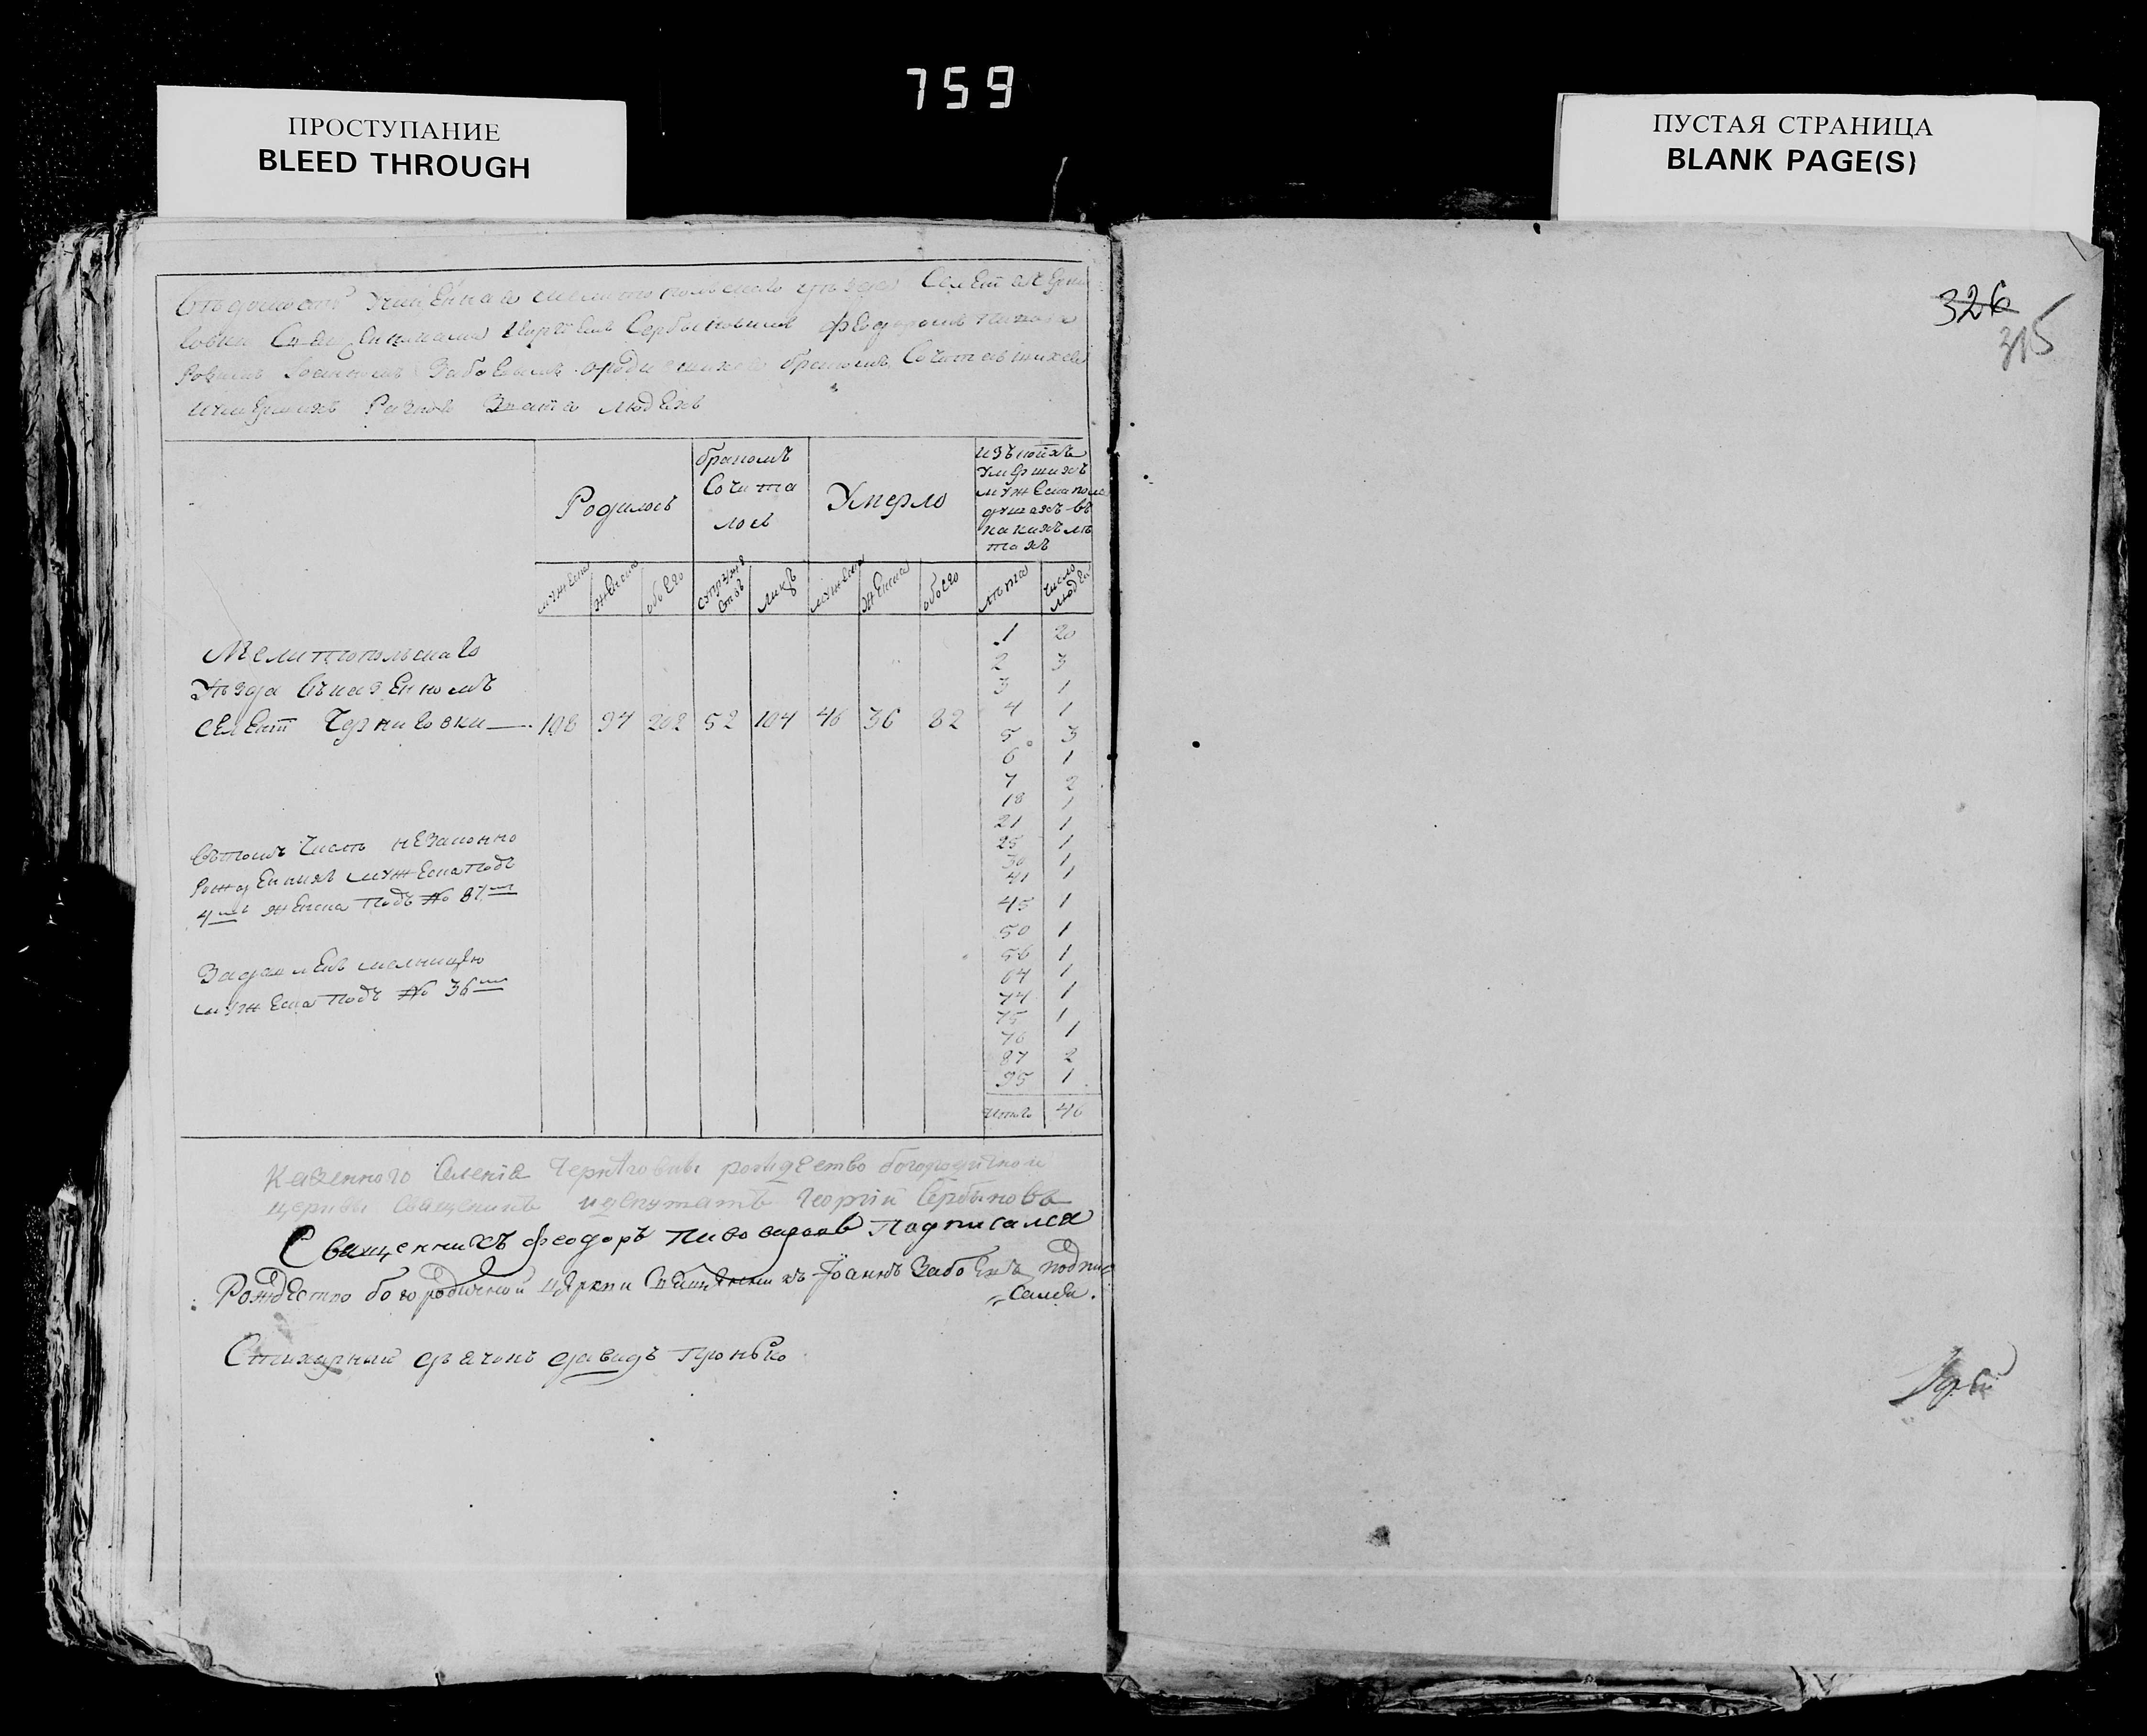 759
ПРОСТУПАНИЕ
BLEED THROUGH
ПУСТАЯ СТРАНИЦА
BLANK PAGE(S)
326
315
Мелитопольскаго уезда
Федоромъ
Іоанномъ бракомъ Сочитавшихся
людехъ
Родилось
бракомъ
Сочита
лось
Умерло
изъ коихъ
Умершихъ
мужеска пола
душахъ въ
каких лѣ
тахъ
мужеска женска обоего супруже
ствъ лицъ мужеска женска обоего лѣта число
людей
Мелитопольскаго
Уѣзда Въказенномъ
селеніи Черниговки 108 94 202 52 104 46 36 82
1 20
2 3
3 1
4 1
5 3
6 1
7 2
18 1
21 1
25 1
30 1
41 1
45 1
50 1
56 1
64 1
74 1
75 1
76 1
87 2
95 1
итого 46
Втомъ Числѣ незаконно
рожденнихъ мужеска подъ
4мъ женска подъ № 87мъ
Задавленъ мельницею
мужеска подъ № 36мъ
Казенного Селенія Черниговки рождество богородичной
церкви Священникъ и депутатъ Георгій Сербиновъ
Священникъ Феодоръ Пивоваровъ Подписался
Рождество богородичной церкви Священникъ Іоаннъ подпи
сался.
Стихарный дьячокъ давидъ